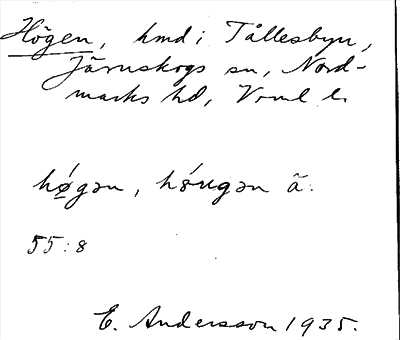 Högen, hmd i Tållesbyn,
Järnskogs sn, Nord-
marks hd, Vrml l.
hø̀gən, hóugən ä.
55:8
E. Andersson 1935.